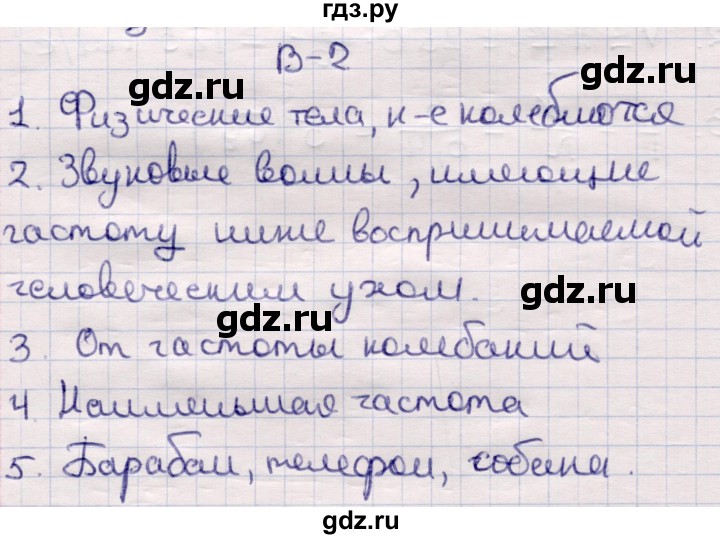 гдз.ру
В-2
1. Физические тела, к-е колеблются
2. Звуковые волны, имеющие
частоту ниже воспринимаемой
человеческим ухом.
3. От частоты колебаний
4 Наименьшая частота
5. Барабан, телефон, собака.
gdz.ru
gdz.ru
gdz.ru
gdz.ru
gdz.ru
gdz.ru
gdz.ru
gdz.ru